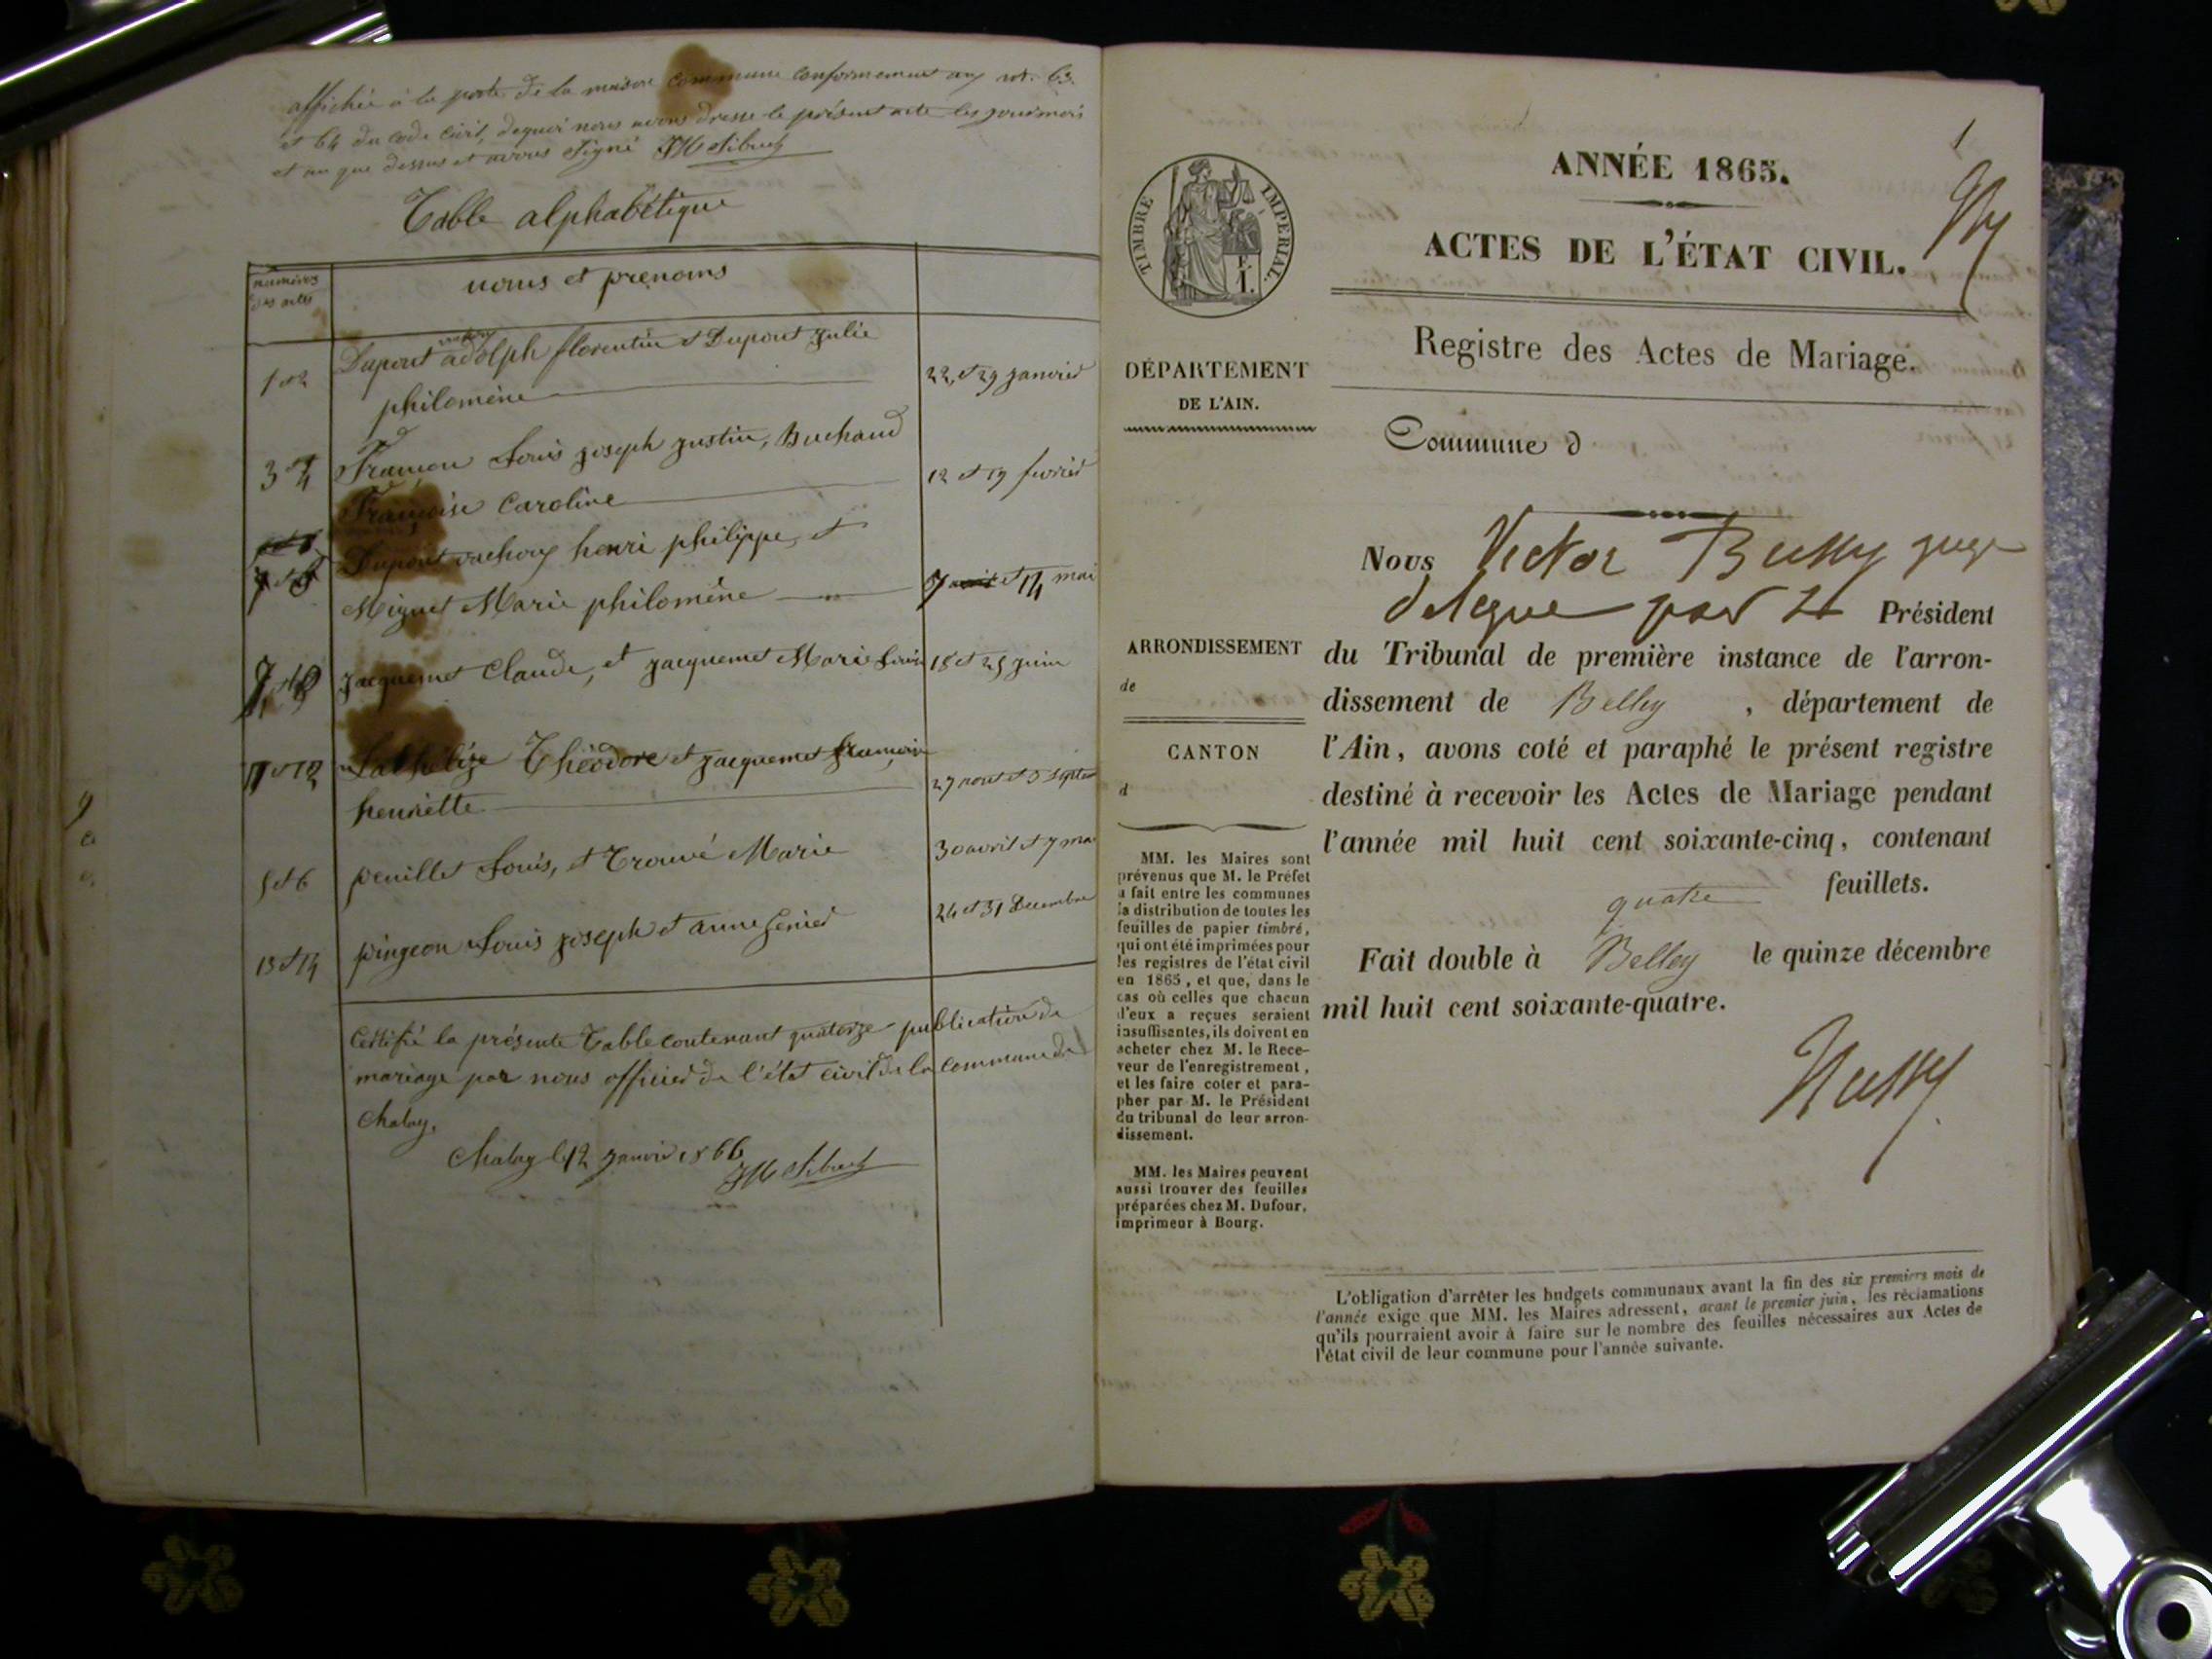 affichée à la porte de la maison commune conformement aux art. 63.
et 64 du code civil, dequoi nous avons dressé le présent acte les jour mois
et an que dessus et avons signé
Table alphabétique
numéros
des actes
noms et prenoms
1 et 2
Dupont adolph florentin et Dupont Julie
philomène
22, et 29 janvier
3 et 4
Louis joseph justin, Buchaud
Françoise Caroline
12 et 19 fevrier
Dupont henri philippe, et
Miguet Marie philomène
7 et 14 mai
Jacquemet Claude, et jacquemet Marie Louise
18 et 25 juin
11 et 12
Théodore et jacquemet françoise
henriette
27 aout et 3 septem
5 et 6
peuillet Louis, et Trouvé Marie
30 avril et 7 mai
13 et 14
pingeon Louis joseph et anne
24 et 31 Decembre
Certifié la présente Table contenant quatorze publication de
mariage par nous officier de l'état civil de la commune de
Chaley.
Chaley le 12 janvier 1866
1
ANNÉE 1865.
ACTES DE L'ÉTAT CIVIL.
TIMBRE IMPERIAL.
F.
1.
Registre des Actes de Mariage.
DÉPARTEMENT
DE L'AIN.
Commune d
Nous Victor Bussy juge
délégué par le Président
du Tribunal de première instance de l'arron-
dissement de Belley , département de
l'Ain, avons coté et paraphé le présent registre
destiné à recevoir les Actes de Mariage pendant
l'année mil huit cent soixante-cinq, contenant
quatre feuillets.
Fait double à Belley le quinze décembre
mil huit cent soixante-quatre.
Bussy
ARRONDISSEMENT
de
CANTON
d
MM. les Maires sont
prévenus que M. le Préfet
a fait entre les communes
la distribution de toutes les
feuilles de papier timbré,
qui ont été imprimées pour
les registres de l'état civil
en 1865, et que, dans le
cas où celles que chacun
d'eux a reçues seraient
insuffisantes, ils doivent en
acheter chez M. le Rece-
veur de l'enregistrement,
et les faire coter et para-
pher par M. le Président
du tribunal de leur arron-
dissement.
MM. les Maires peuvent
aussi trouver des feuilles
préparées chez M. Dufour,
imprimeur à Bourg.
L'obligation d'arrêter les budgets communaux avant la fin des six premiers mois de
l'année exige que MM. les Maires adressent, avant le premier juin, les réclamations
qu'ils pourraient avoir à faire sur le nombre des feuilles nécessaires aux Actes de
l'état civil de leur commune pour l'année suivante.